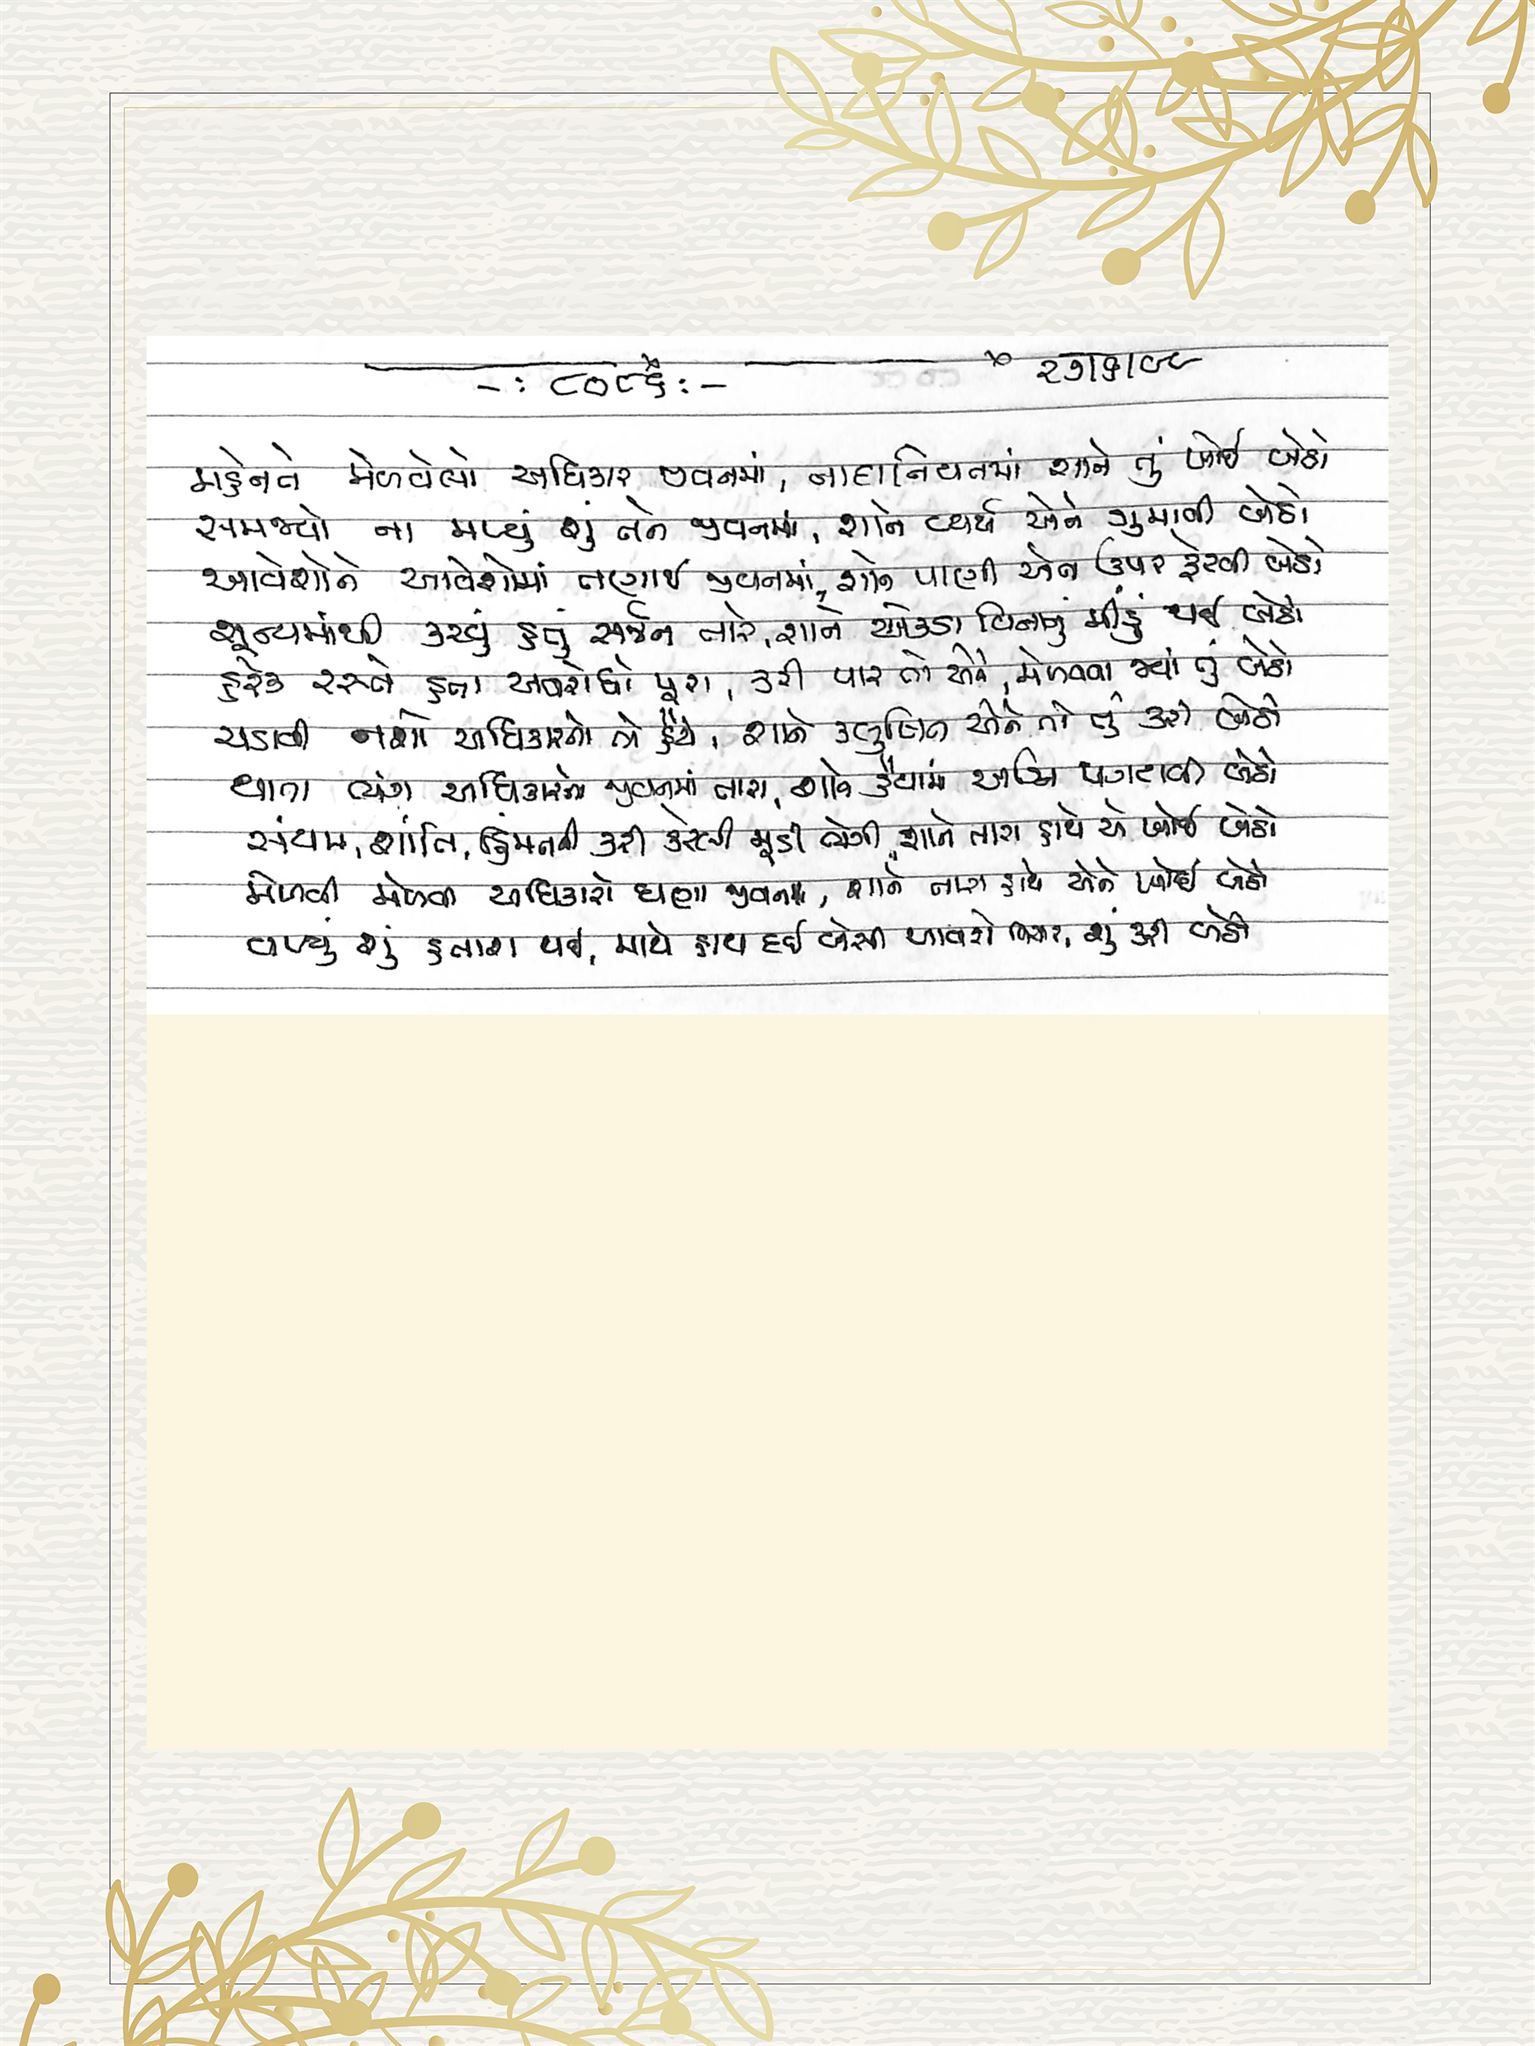 -: ૮૦૮૬ :-
મહેનતે મેળવેલો અધિકાર જીવનમાં, નાદાનિયતમાં શાને તું ખોઈ બેઠો
સમજ્યો ના મળ્યું શું તને જીવનમાં, શાને વ્યર્થ એને ગુમાવી બેઠો
આવેશોને આવેશોમાં તણાઈ જીવનમાં, શાને પાણી એના ઉપર ફેરવી બેઠો
શૂન્યમાંથી કર્યું હતું સર્જન તારે, શાને એકડા વિનાનું મીંડું થઈ બેઠો
હરેક રસ્તે હતા અવરોધો પૂરા, કરી પાર તો એને, મેળવવા જ્યાં તું બેઠો
ચડાવી નશો અધિકારનો તો હૈયે, શાને કલુષિત એને તો તું કરી બેઠો
થાતા વ્યંગ અધિકારનો જીવનમાં તારા, શાને હૈયામાં અગ્નિ પ્રગટાવી બેઠો
સંયમ, શાંતિ, હિંમતની કરી કરેલી મૂડી ભેગી, શાને તારા હાથે એ ખોઈ બેઠો
મેળવી મેળવી અધિકારો ઘણા જીવનમાં, શાને તારા હાથે એને ખોઈ બેઠો
વળ્યું શું હતાશ થઈ, માથે હાથ દઈ બેસી આવશે વિચાર, શું કરી બેઠો